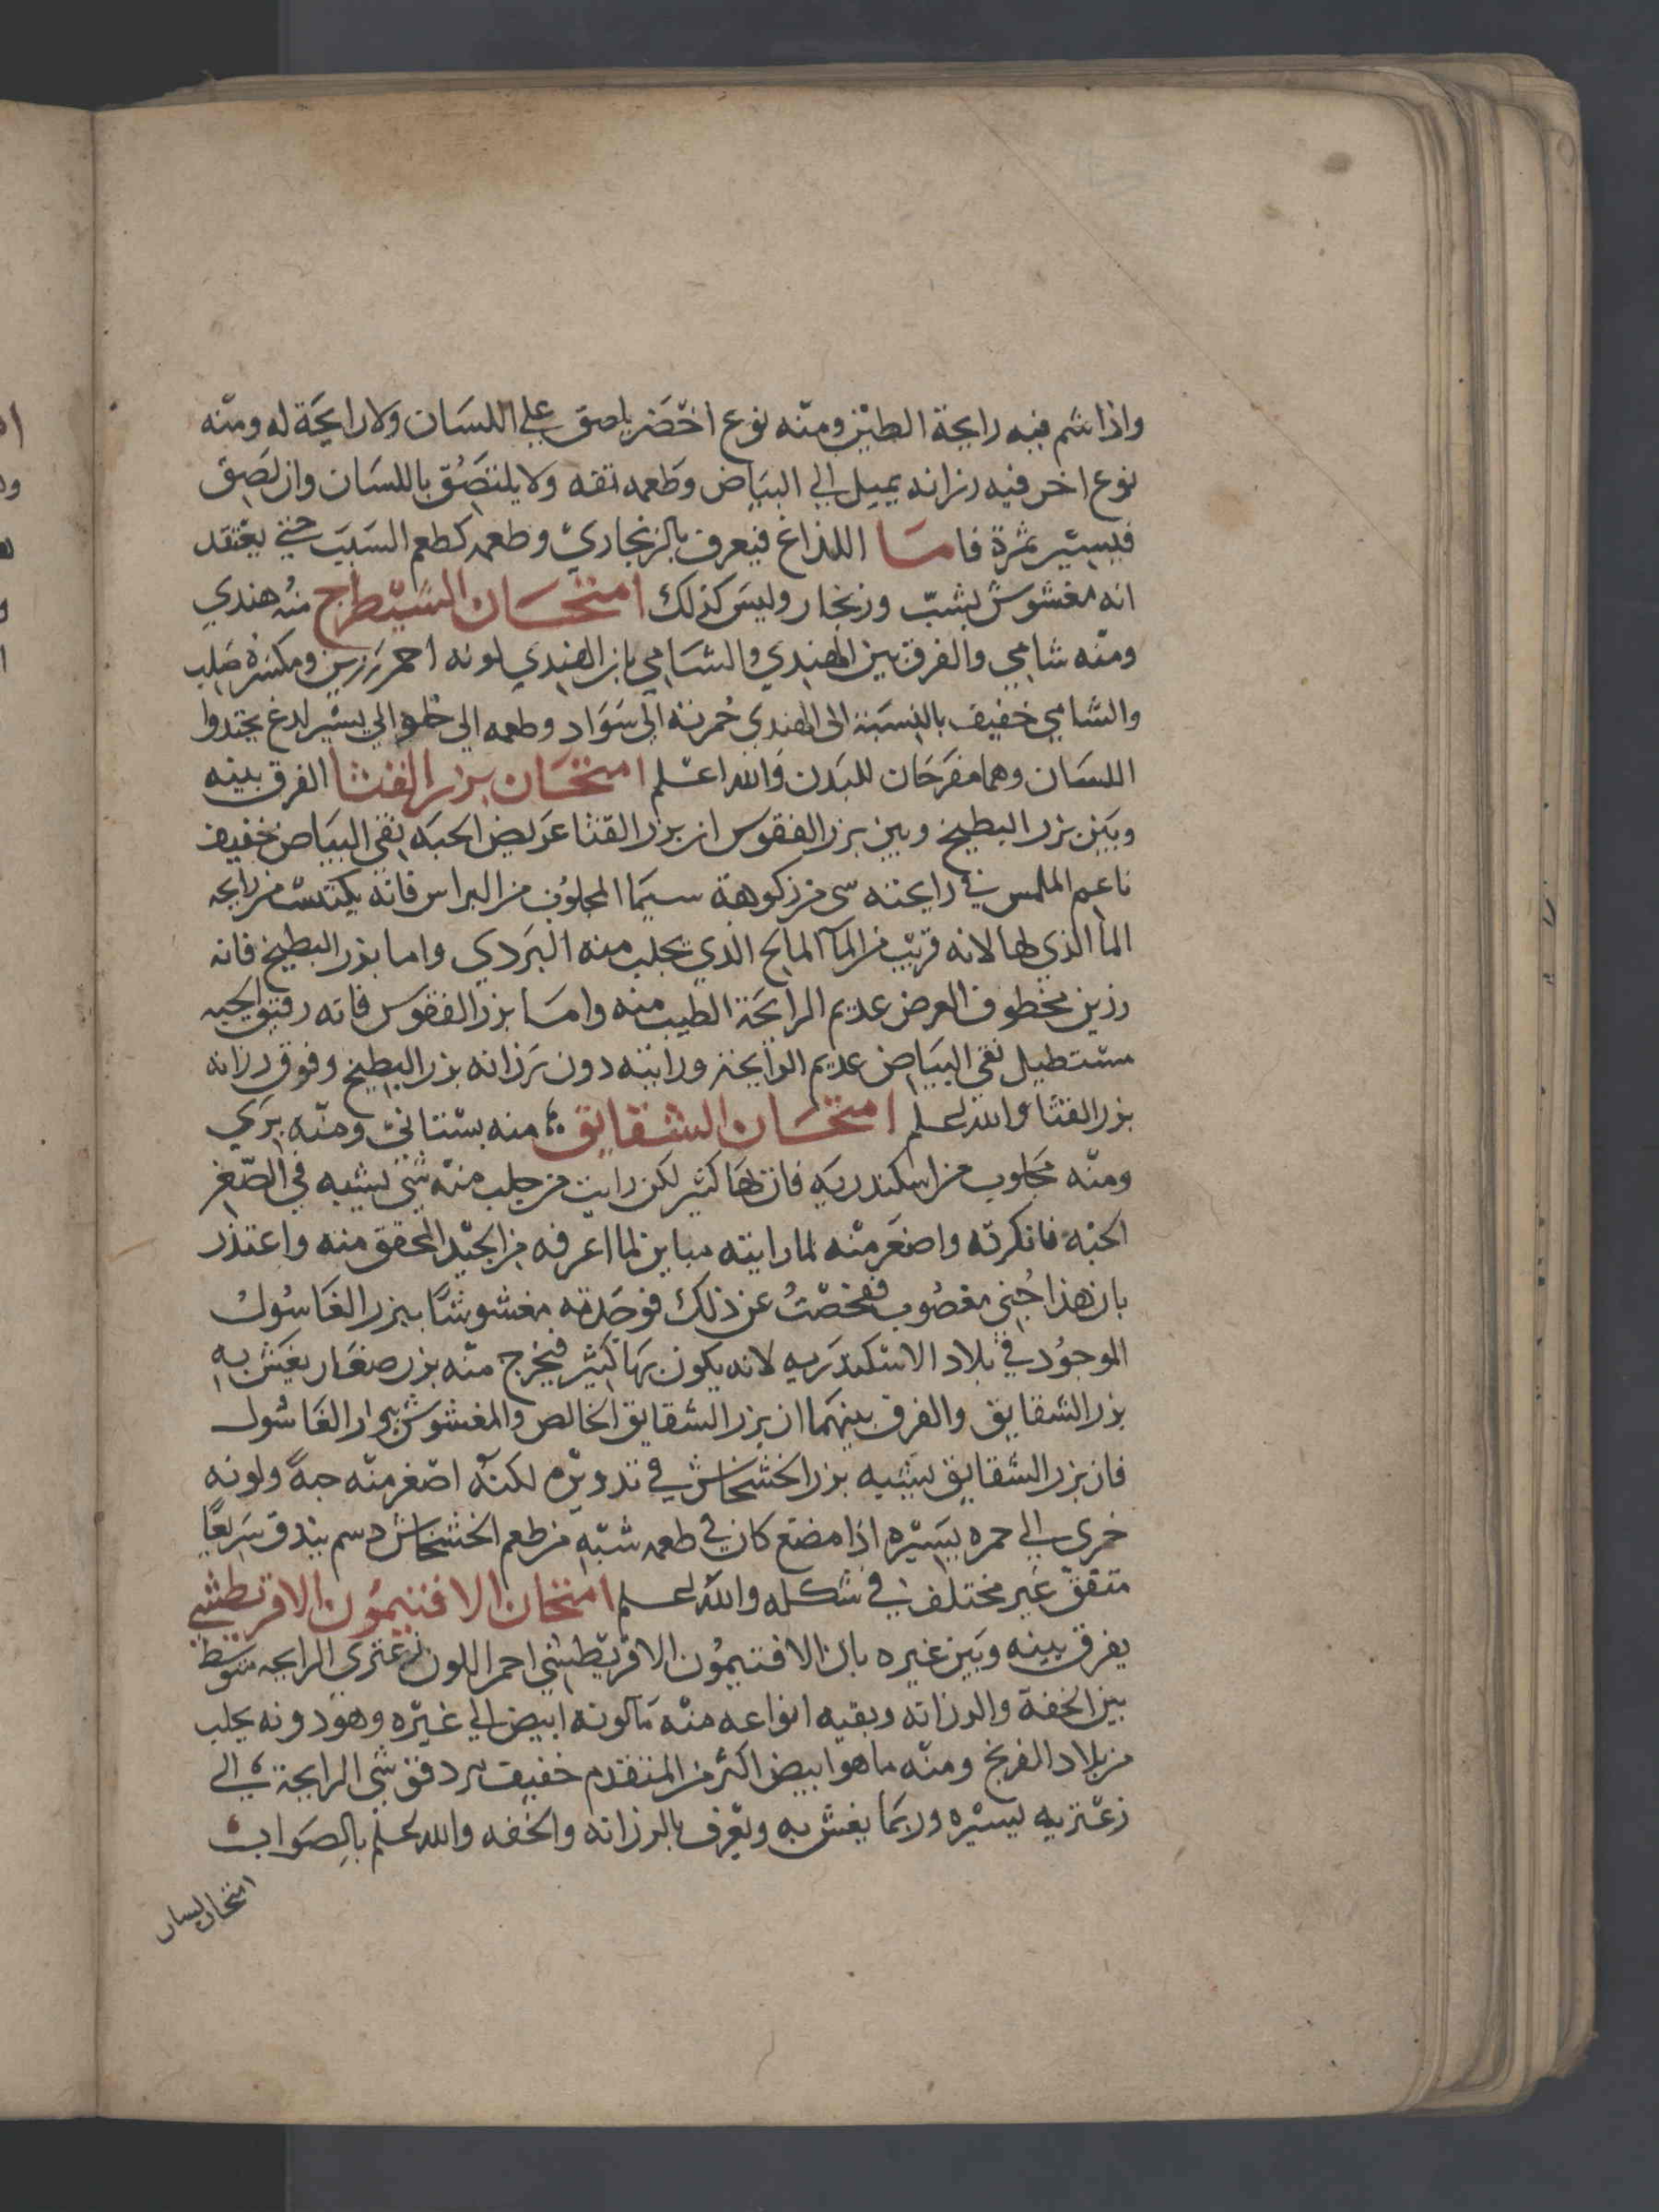 واذا شم فيه رايحة الطين ومنه نوع اخضر يلصق على اللسان ولا رايحة له ومنه
نوع اخر فيه رزانه يميل الى البياض وطعمه تفه ولا يلتصق باللسان وان لصق
فيسير بثمرة فاما اللذاع فيعرف بالزنجاري وطعمه كطعم الشب حتى يعتقد
انه مغشوش بشب وزنجار وليس كذلك امتحان الشيطرج منه هندي
ومنه شامي والفرق بين الهندي والشامي بان الهندي لونه احمر رزين ومكسره صلب
والشامي خفيف بالنسبة الى الهندي حمرته الى سواد وطعمه الى حلو الى يسير لدغ يحذوا
اللسان وهما مقرحان للبدن والله اعلم امتحان بزر القثا الفرق بينه
وبين بزر البطيخ وبين بزر الفقوس ان بزر القثا عريض الحبه نقي البياض خفيف
ناعم الملمس في رايحته شي من زكوهة سيما المجلوب من البراس فانه يكتسب من رايحه
الما الذي لها لانه قريب من المآ المالح الذي يجلب منه البردي واما بزر البطيخ فانه
رزين مخطوف العرض عديم الرايحة الطيب منه واما بزر الفقوس فانه رقيق الحبه
مستطيل نقي البياض عديم الرايحة ورايته دون رزانه بزر البطيخ وفوق رزانه
بزر القثا والله اعلم امتحان الشقايق منه بستاني ومنه بري
ومنه مجلوب من اسكندريه فان بها كثير لكن رايت من جلب منه شي يشبه في الصغر
الحبه فانكرته واصغر منه لما رايته مباين لما اعرفه من الجيد المحقق منه واعتذر
بان هذا جني مغصوب ففحصت عن ذلك فوجدته مغشوشا ببزر الغاسول
الموجود في بلاد الاسكندريه لانه يكون بها كثير فيخرج منه بزر صغار يغش به
بزر الشقايق والفرق بينهما ان بزر الشقايق الخالص والمغشوش بزر الغاسول
فان بزر الشقايق يشبه بزر الخشخاش في تدويره لكنه اصغر منه حبة ولونه
خمري الى حمره يسيره اذا مضغ كان في طعمه شبه من طعم الخشخاش دسم يندق سريعا
متفق غير مختلف في شكله والله اعلم امتحان الافتيمون الاقريطشي
يفرق بينه وبين غيره بان الافتيمون الاقريطشي احمر اللون زعتري الرايحه متوسط
بين الخفة والرزانه وبقيه انواعه منه ما لونه ابيض الى غبره وهو دونه يجلب
من بلاد الفرنج ومنه ما هو ابيض اكثر من المتقدم خفيف الرايحة الى
زعتريه يسيره وربما يغش به ويعرف بالرزانه والخفه والله اعلم بالصواب
امتحان لسان